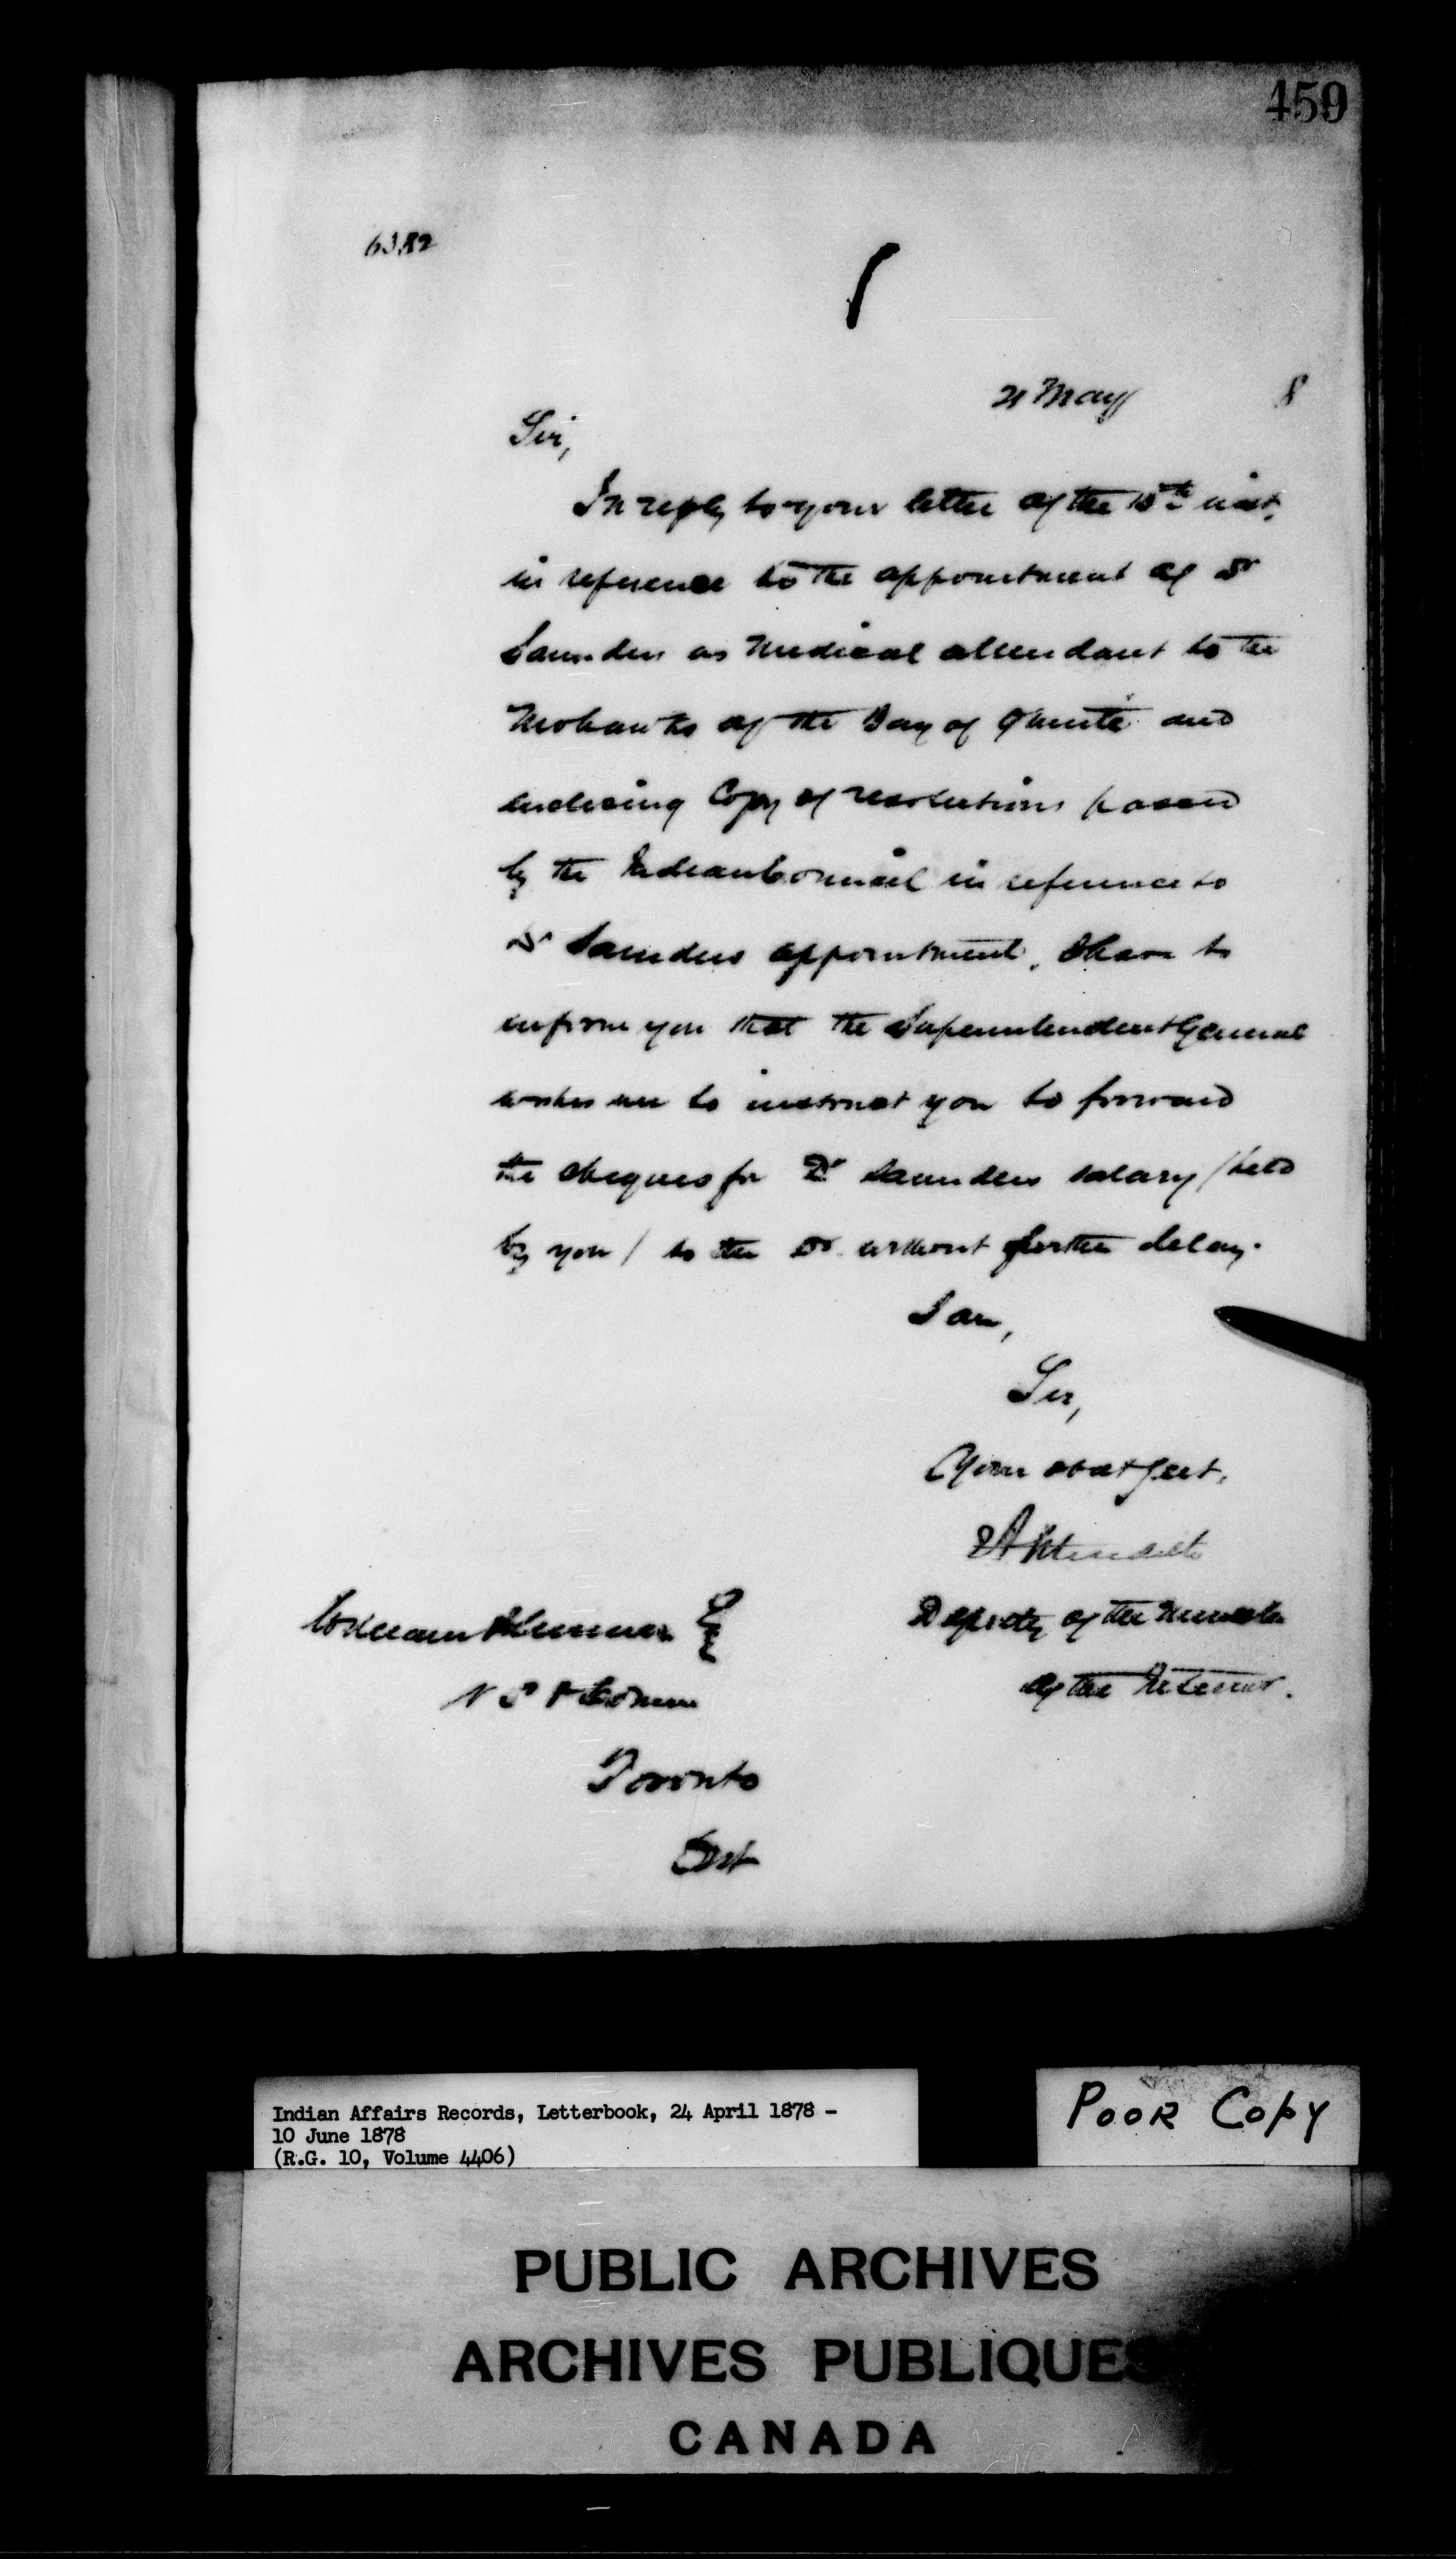 459
6382
21 May 8
Sir,
In reply to your letter of the 15th inst,
in reference to the appointment of Dr
Saunders as Medical attendant to the
Mohawks of the Bay of Quinté and
enclosing Copy of resolutions passed
by the Indian Council in reference to
Dr Saunders appointment, I have to
inform you that the Superintendent General
wishes me to instruct you to forward
the cheques for Dr Saunders salary (held
by you) to the Dr without further delay.
I am,
Sir,
Your obdt Servt,
EA Meredith
Deputy of the Minister
of the Interior.
William Plummer Esq
Toronto
Ont
Indian Affairs Records, Letterbook, 24 April 1878 -
10 June 1878
(R.G. 10, Volume 4406)
POOR COPY
PUBLIC ARCHIVES
ARCHIVES PUBLIQUES
CANADA